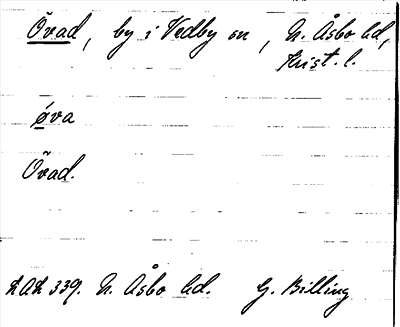 Övad, by i Vedby sn, N. Åsbo hd,
Krist. l.
øva
Övad.
LAL 339. N. Åsbo hd. G. Billing